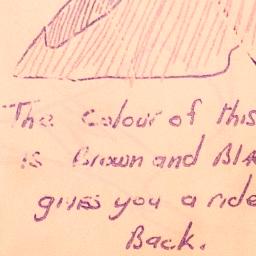 The colour of this
is Brown and
gives you a ride
Back.